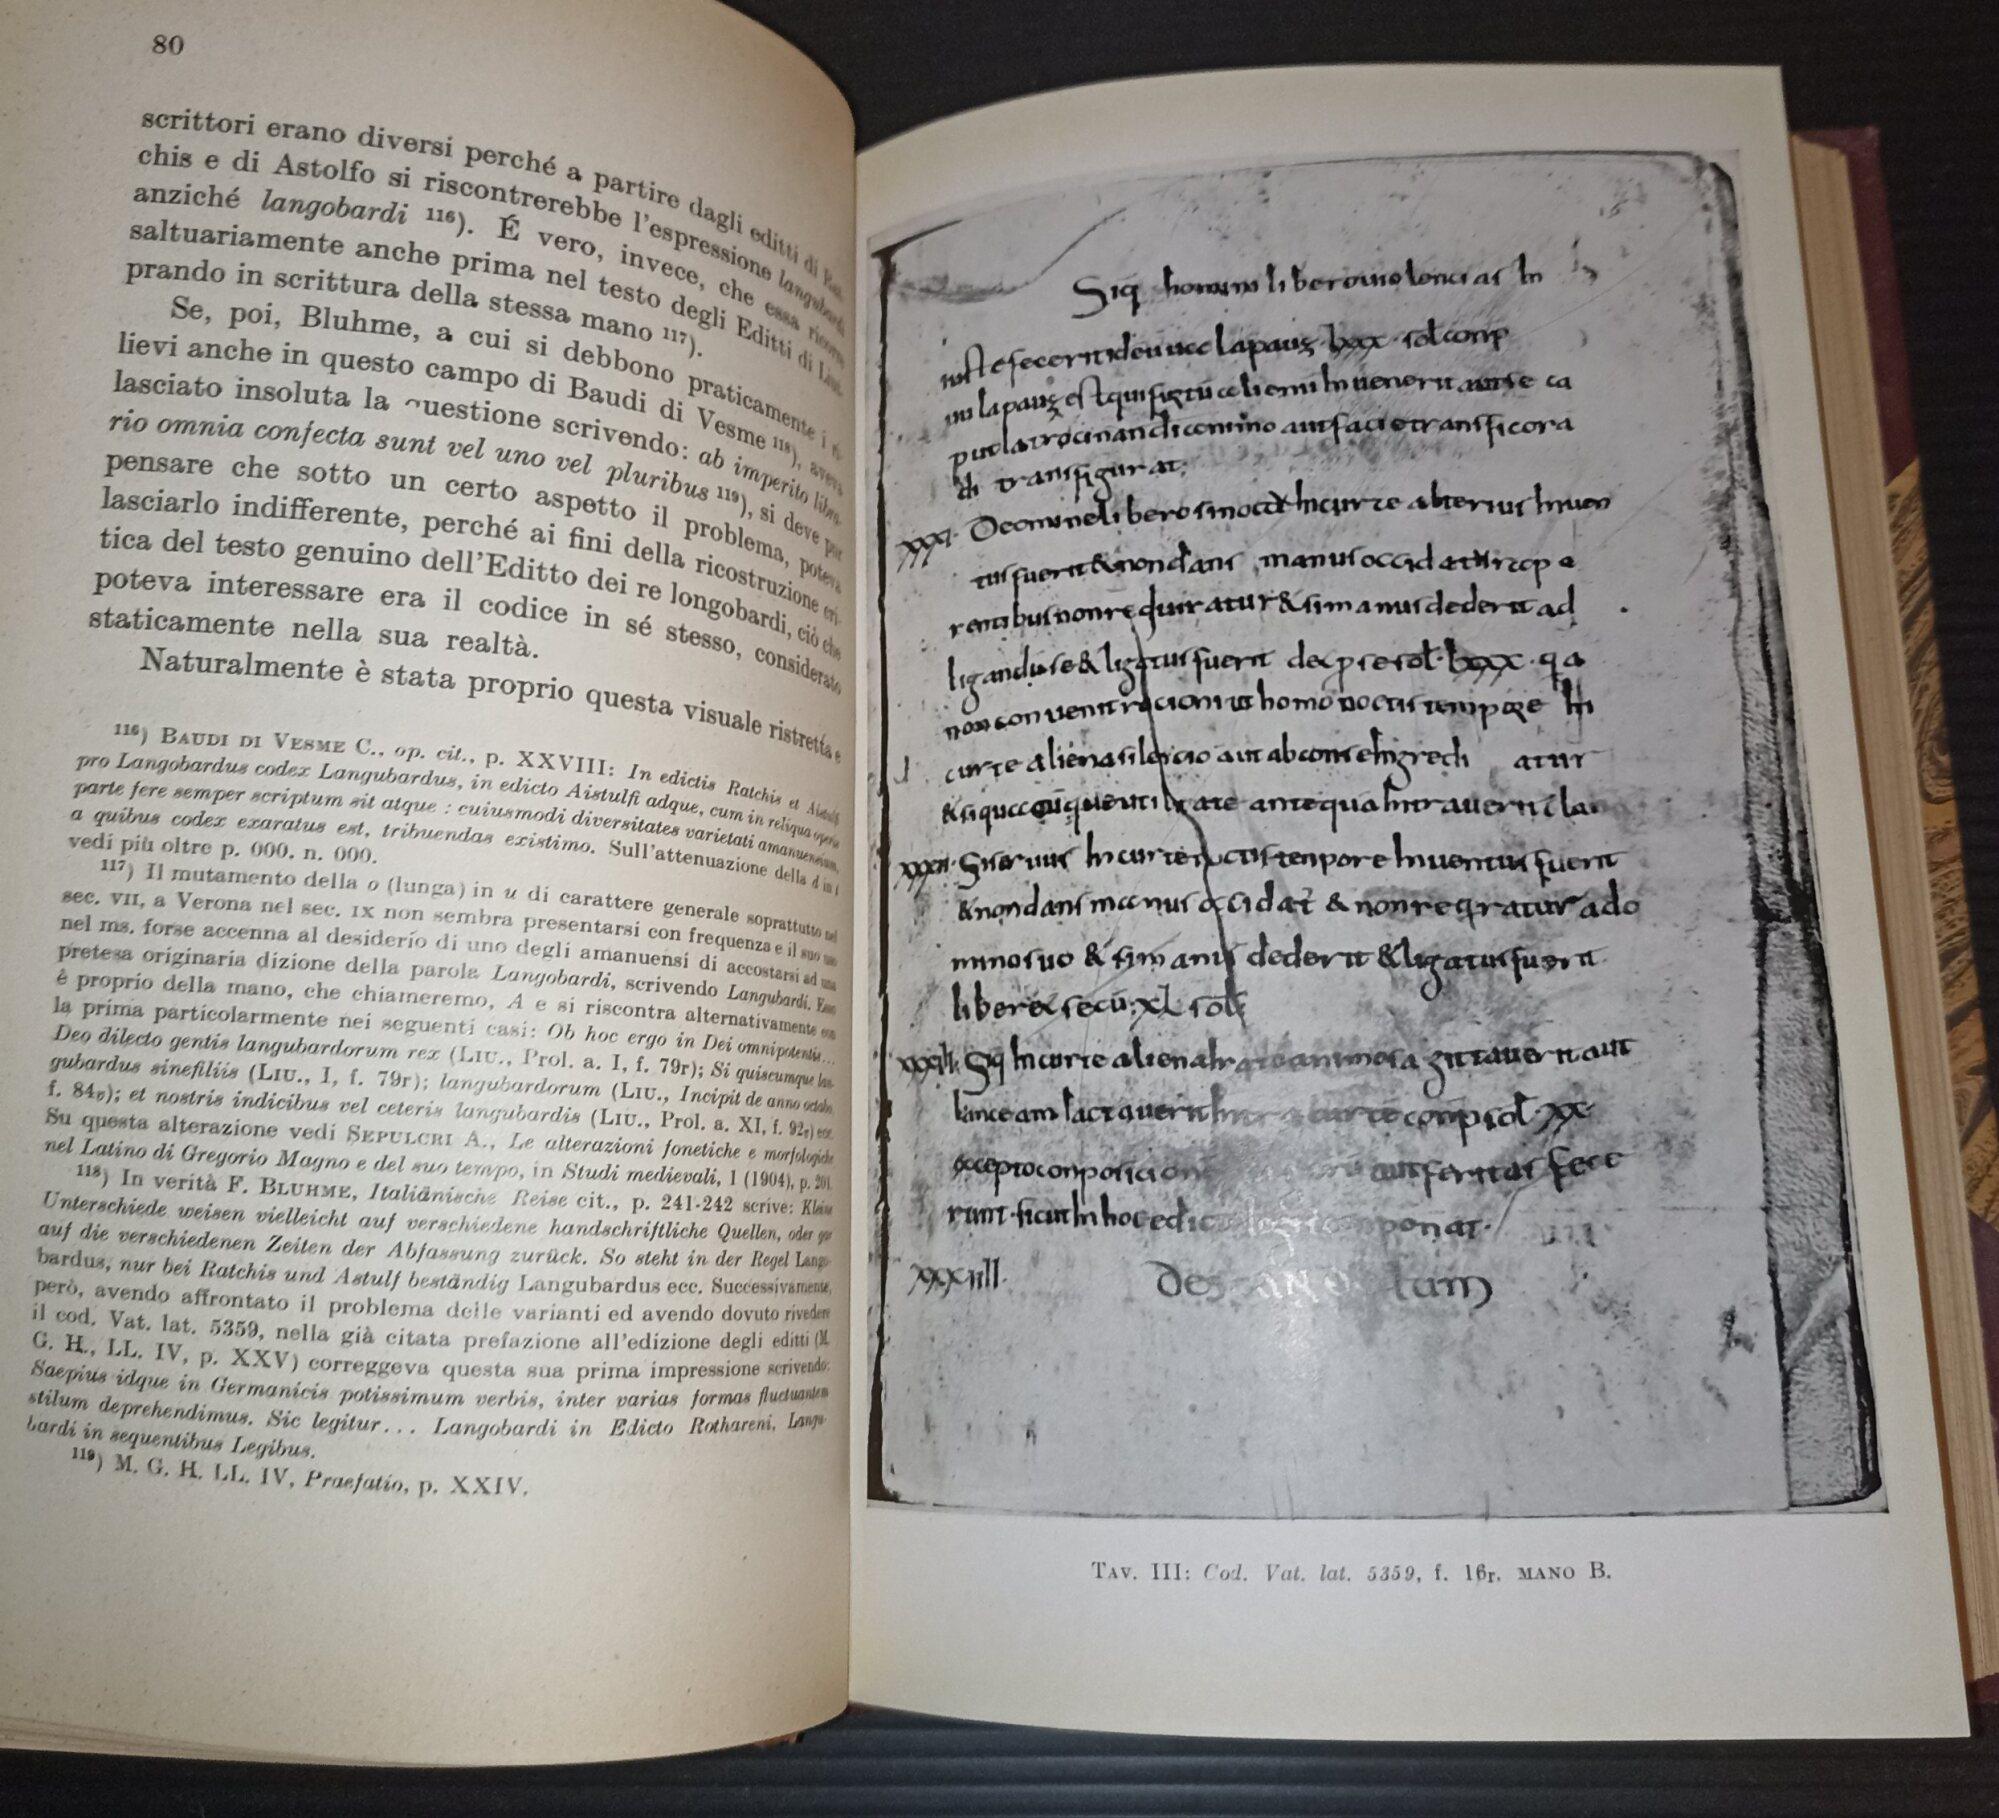 80
scrittori erano diversi perché a partire dagli editti di
chis e di Astolfo si riscontrerebbe l'espressione langubardi
anziché langobardi 116). É vero, invece, che essa ricorre
saltuariamente anche prima nel testo degli Editti di Liut-
prando in scrittura della stessa mano 117).
Se, poi, Bluhme, a cui si debbono praticamente i
lievi anche in questo campo di Baudi di Vesme 118), aveva
lasciato insoluta la questione scrivendo: ab imperito libra-
rio omnia confecta sunt vel uno vel pluribus 119), si deve pur
pensare che sotto un certo aspetto il problema, poteva
lasciarlo indifferente, perché ai fini della ricostruzione cri-
tica del testo genuino dell'Editto dei re longobardi, ciò che
poteva interessare era il codice in sé stesso, considerato
staticamente nella sua realtà.
Naturalmente è stata proprio questa visuale ristretta e
116) BAUDI DI VESME C., op. cit., p. XXVIII: In edictis Ratchis et Aistulfi
pro Langobardus codex Langubardus, in edicto Aistulfi adque, cum in reliqua operis
parte fere semper scriptum sit atque : cuiusmodi diversitates varietati amanuensium,
a quibus codex exaratus est, tribuendas existimo. Sull'attenuazione della d in t
vedi più oltre p. 000. n. 000.
117) Il mutamento della o (lunga) in u di carattere generale soprattutto nel
sec. VII, a Verona nel sec. IX non sembra presentarsi con frequenza e il suo uso
nel ms. forse accenna al desiderio di uno degli amanuensi di accostarsi ad una
pretesa originaria dizione della parola Langobardi, scrivendo Langubardi. Esso
è proprio della mano, che chiameremo, A e si riscontra alternativamente con
la prima particolarmente nei seguenti casi: Ob hoc ergo in Dei omnipotentis...
Deo dilecto gentis langubardorum rex (LIU., Prol. a. I, f. 79r); Si quiscumque lan-
gubardus sinefiliis (LIU., I, f. 79r); langubardorum (LIU., Incipit de anno octabo,
f. 84v); et nostris indicibus vel ceteris langubardis (LIU., Prol. a. XI, f. 92r) ecc.
Su questa alterazione vedi SEPULCRI A., Le alterazioni fonetiche e morfologiche
nel Latino di Gregorio Magno e del suo tempo, in Studi medievali, 1 (1904), p. 201.
118) In verità F. BLUHME, Italiänische Reise cit., p. 241-242 scrive: Kleine
Unterschiede weisen vielleicht auf verschiedene handschriftliche Quellen, oder gar
auf die verschiedenen Zeiten der Abfassung zurück. So steht in der Regel Lango-
bardus, nur bei Ratchis und Astulf beständig Langubardus ecc. Successivamente,
però, avendo affrontato il problema delle varianti ed avendo dovuto rivedere
il cod. Vat. lat. 5359, nella già citata prefazione all'edizione degli editti (M.
G. H., LL. IV, p. XXV) correggeva questa sua prima impressione scrivendo:
Saepius idque in Germanicis potissimum verbis, inter varias formas fluctuantem
stilum deprehendimus. Sic legitur... Langobardi in Edicto Rothareni, Langu-
bardi in sequentibus Legibus.
119) M. G. H. LL. IV, Praefatio, p. XXIV.
Siq homini libero violencias in
iuste fecerit
di transfigurat
XXXI. De omine libero si noctu in curte alterius inuen
tus fuerit & non dans manus occidatur
rentibus non requiratur & si manus dederit ad
ligandu se & ligatus fuerit sol. lxxx. q a
non convenit racioni ut homo noctis tempore in
curte aliena silencio aut absconse ingredi atur
XXXII. Si servus in curte noctis tempore inventus fuerit
& non dans manus occidat & non reqratur a do
mino suo & si manus dederit & ligatus fuerit
liberet se cu: XL sol
XXXIII. Siq in curte aliena irato animo sagittaverit aut
lanceam iactaverit intra curte conp sol. XX.
excepto conposicione aut feritas fece
runt. sicut in hoc edic conponat.
XXXIIII.
TAV. III: Cod. Vat. lat. 5359, f. 16r. MANO B.